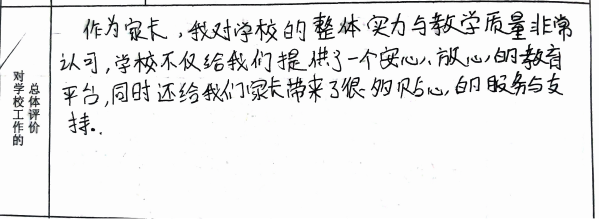 对学校工作的
总体评价
作为家长，我对学校的整体实力与教学质量非常
认可，学校不仅给我们提供了一个安心、放心的教育
平台，同时还给我们家长带来了很多贴心的服务与支
持。